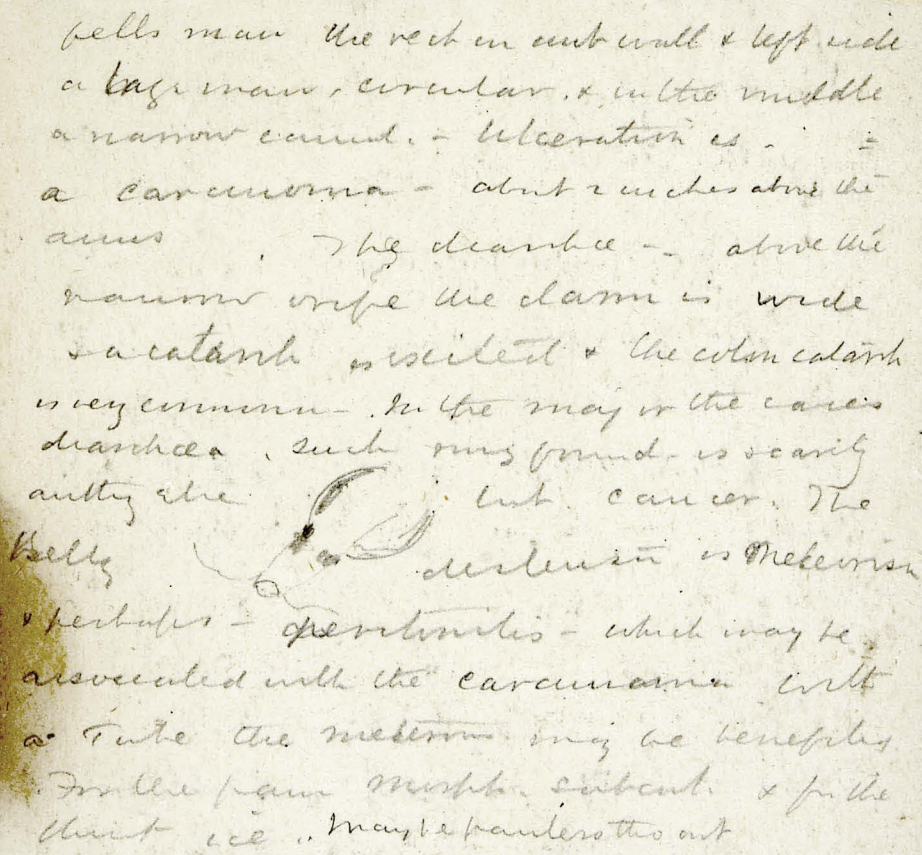 man the rect in ant wall & left side
a large man, circular, & in the middle
a narrow canal. - Ulceration is - =
a carcinoma - about 2 inches above the
anus. The diarrhoe - above the
narrow the is wide
& a catarrh is excited & the colon catarrh
is very common - In the maj of the cases
diarrhoea, such ring found - is scarcely
but cancer. The
Belly distension is Meteorism
& perhaps - peritonitis - which may be
associated with the carcinoma with
a Tube the may be
For the pain Morph. subcut. & for the
ice. May be